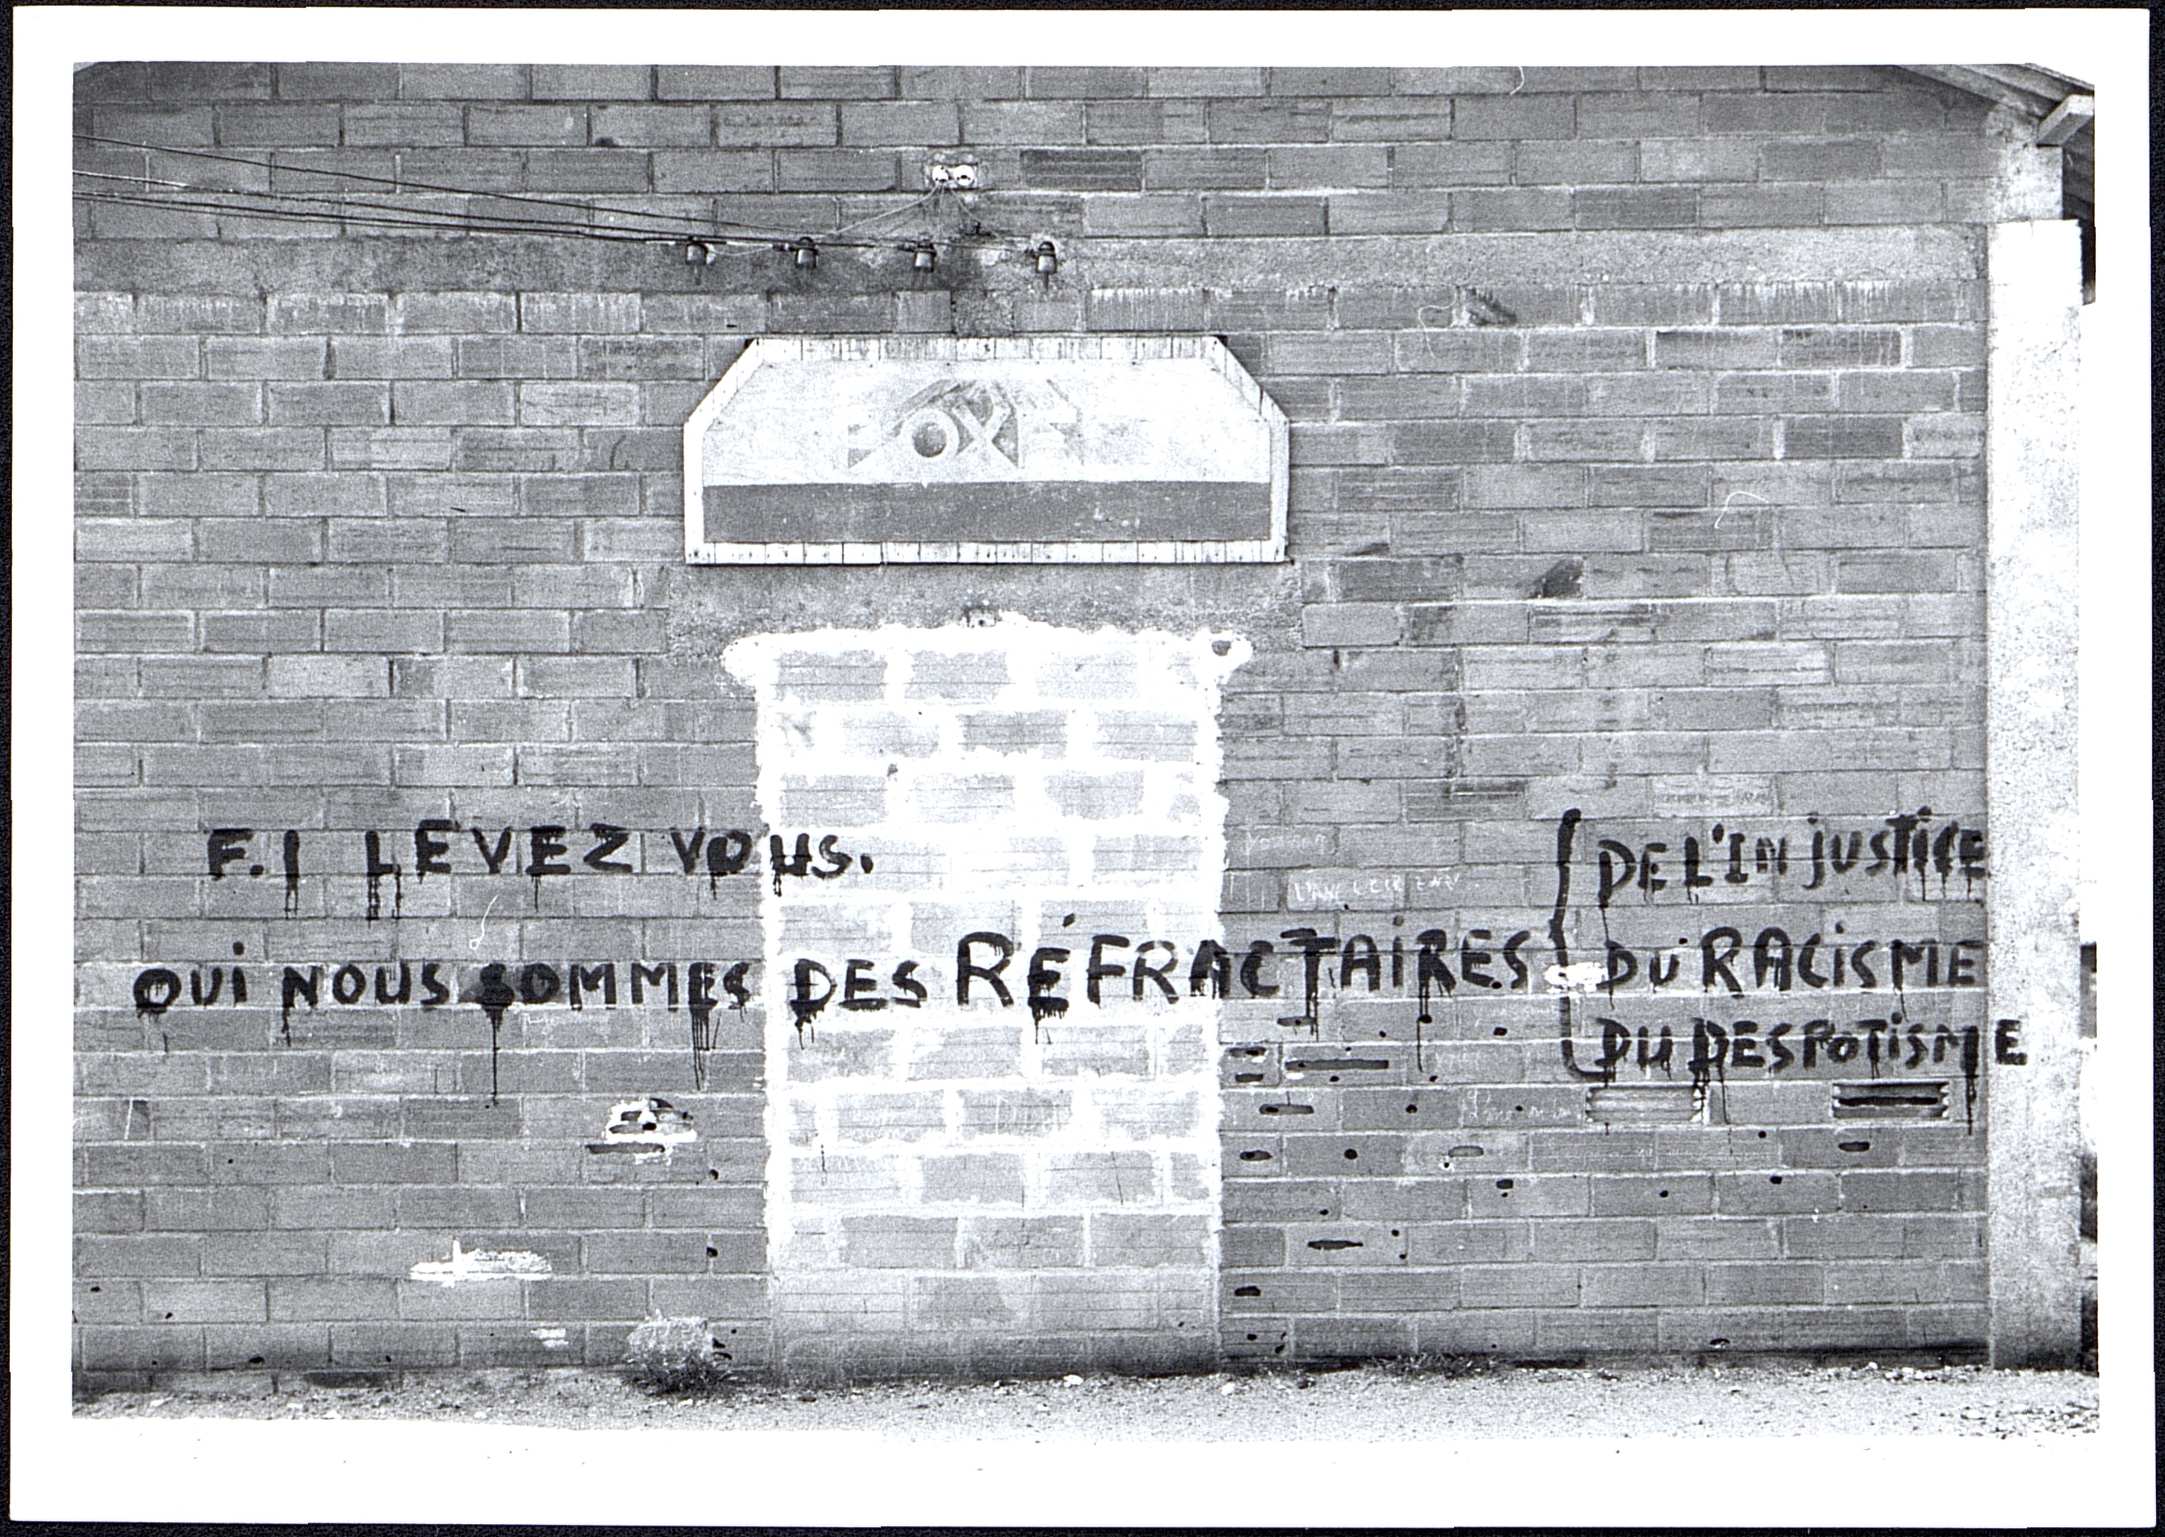 BOXE
F.I LEVEZ VOUS.
OUI NOUS SOMMES DES RÉFRACTAIRES
DE L'INJUSTICE
DU RACISME
DU DESPOTISME